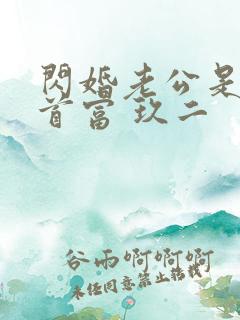 閃婚老公是
首富 玖二
谷雨啊啊啊
未经同意禁止转载